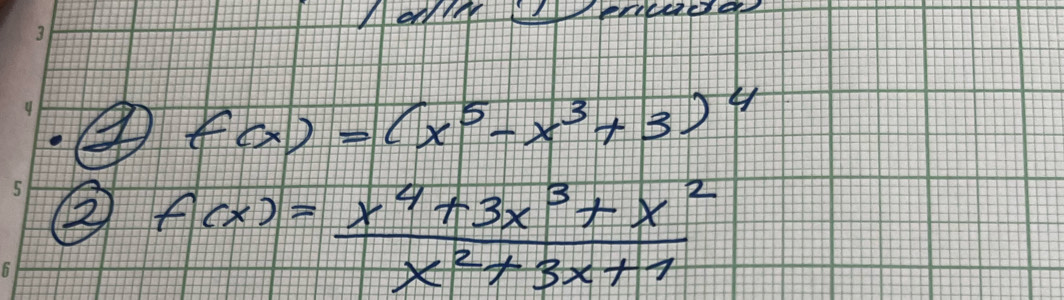 Taller Derivadas
3
4
. ① f(x) = (x⁵ - x³ + 3)⁴
5
② f(x) = x⁴ + 3x³ + x²
x² + 3x + 1
6